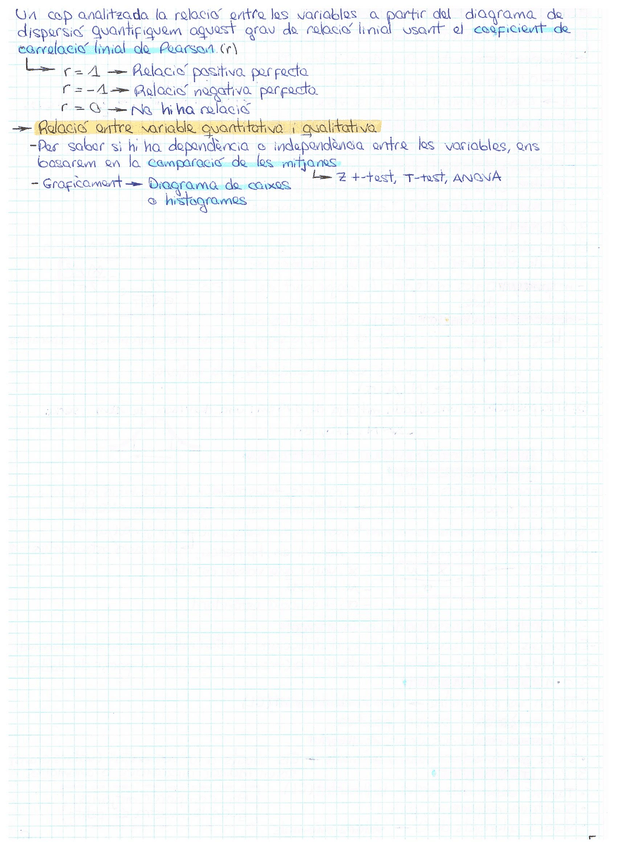 Un cop analitzada la relació entre les variables a partir del diagrama de
dispersió quantifiquem aquest grau de relació linial usant el coeficient de
correlació linial de Pearson (r)
↳ r = 1 → Relació positiva perfecta
r = -1 → Relació negativa perfecta
r = 0 → No hi ha relació
→ Relació entre variable quantitativa i qualitativa
-Per saber si hi ha dependència o independència entre les variables, ens
basarem en la comparació de les mitjanes
↳ Z +-test, T-test, ANOVA
- Graficament → Diagrama de caixes
o histogrames